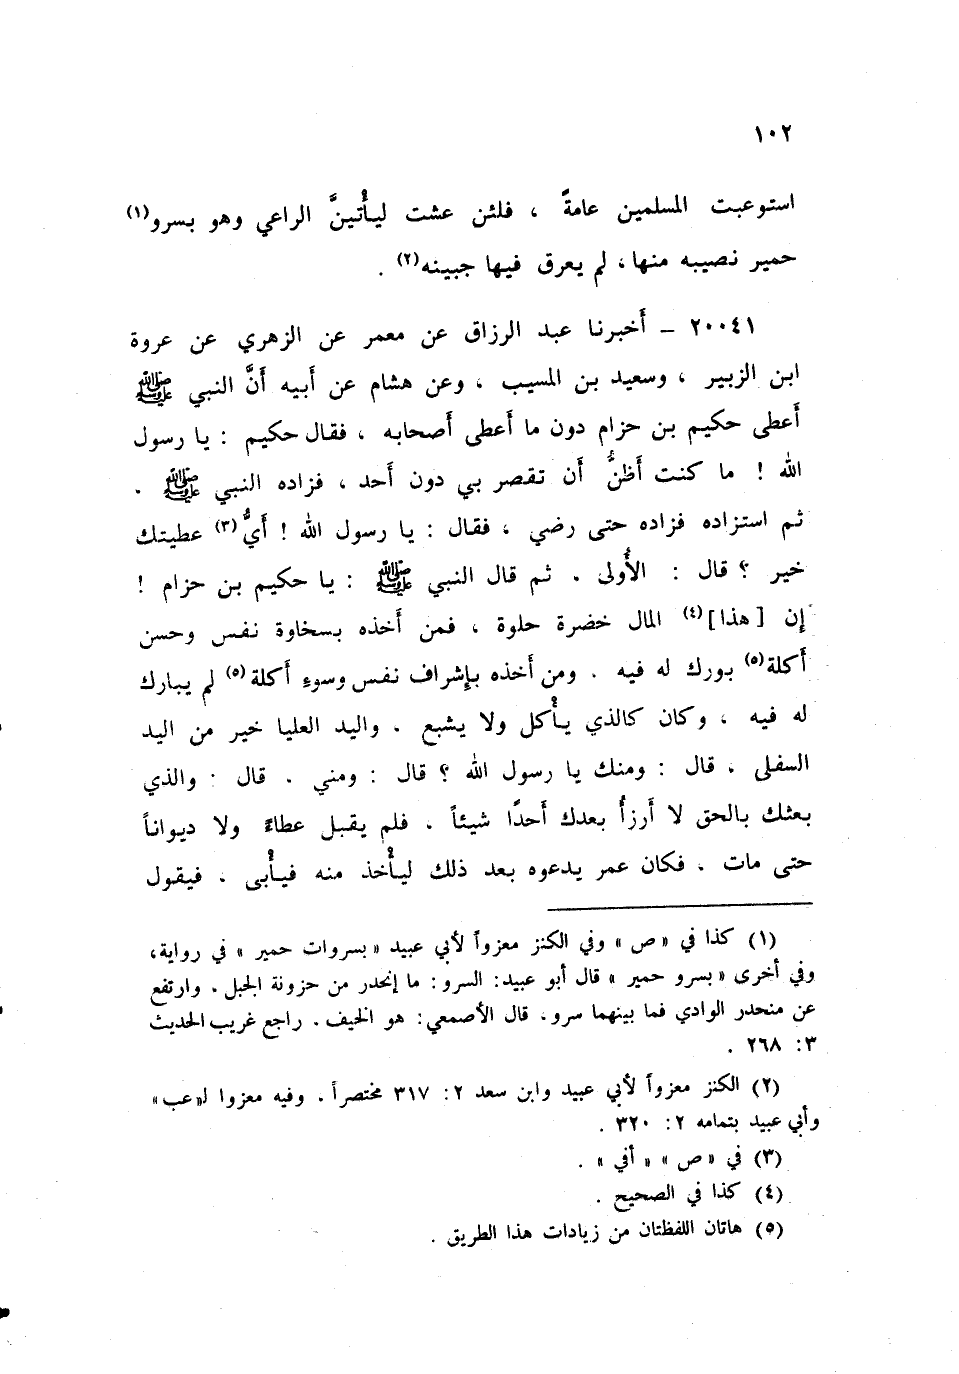 ١٠٢
استوعبت المسلمين عامةً ، فلئن عشت ليأتينَّ الراعي وهو بسرو(١)
حمير نصيبه منها ، لم يعرق فيها جبينه(٢) .
٢٠٠٤١ – أخبرنا عبد الرزاق عن معمر عن الزهري عن عروة
ابن الزبير ، وسعيد بن المسيب ، وعن هشام عن أبيه أنَّ النبي ﷺ
أعطى حكيم بن حزام دون ما أعطى أصحابه ، فقال حكيم : يا رسول
الله ! ما كنت أظنُّ أن تقصر بي دون أحد ، فزاده النبي ﷺ .
ثم استزاده فزاده حتى رضي ، فقال : يا رسول الله ! أيُّ(٣) عطيتك
خير ؟ قال : الأُولى . ثم قال النبي ﷺ : يا حكيم بن حزام !
إن [هذا](٤) المال خضرة حلوة ، فمن أخذه بسخاوة نفس وحسن
أكلة(٥) بورك له فيه . ومن أخذه بإشراف نفس وسوءِ أكلة(٥) لم يبارك
له فيه ، وكان كالذي يأكل ولا يشبع . واليد العليا خير من اليد
السفلى ، قال : ومنك يا رسول الله ؟ قال : ومني . قال : والذي
بعثك بالحق لا أرزأُ بعدك أحدًا شيئاً . فلم يقبل عطاءً ولا ديواناً
حتى مات . فكان عمر يدعوه بعد ذلك ليأخذ منه فيأبى ، فيقول
(١) كذا في «ص» وفي الكنز معزواً لأبي عبيد «بسروات حمير» في رواية،
وفي أخرى «بسرو حمير» قال أبو عبيد: السرو: ما إنحدر من حزونة الجبل . وارتفع
عن منحدر الوادي فما بينهما سرو. قال الأصمعي: هو الخيف. راجع غريب الحديث
٣: ٢٦٨ .
(٢) الكنز معزواً لأبي عبيد وابن سعد ٢: ٣١٧ مختصراً . وفيه معزوا لـ«عب»
وأبي عبيد بتمامه ٢: ٣٢٠ .
(٣) في «ص» «أفي» .
(٤) كذا في الصحيح .
(٥) هاتان اللفظتان من زيادات هذا الطريق .